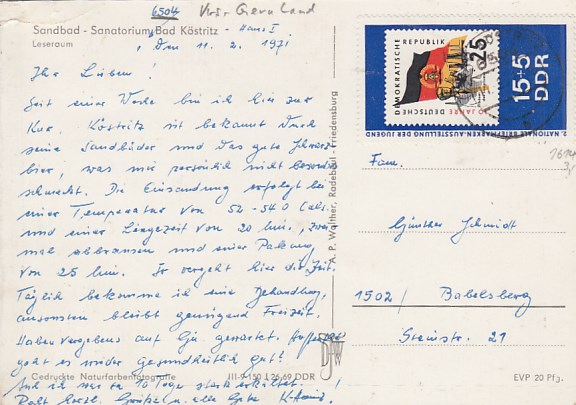 6504 Kreis Gera Land
Sandbad - Sanatorium Bad Köstritz - Haus I
Leseraum
, den 11. 2. 1971
Ihr Lieben!
Seit einer Woche bin ich hier zur
Kur. Köstritz ist bekannt durch
seine Sandbäder und das gute Schwarz-
bier, was mir persönlich nicht besonders
schmeckt. Die Einsandung erfolgt bei
einer Temperatur von 52-54° Cels.
und einer Liegezeit von 20 min., zwei
mal abbrausen und einer Packung
von 25 min. So vergeht hier die Zeit.
Täglich bekomme ich eine Behandlung,
ansonsten bleibt genügend Freizeit.
Haben vergebens auf Euch gewartet. Hoffentlich
geht es wieder gesundheitlich gut?
ich war 10 Tage stark erkältet!
Recht herzl. Grüße u. alles Gute
Gedruckte Naturfarbenfotografie III-9-150 1 26 69 DDR
A. P. Walther, Radebeul - Friedensburg
DEUTSCHE DEMOKRATISCHE REPUBLIK
10 JAHRE
25
15+5
DDR
2. NATIONALE BRIEFMARKEN-AUSSTELLUNG DER JUGEND
Fam.
Günther Schmidt
1502/ Babelsberg
Steinstr. 21
EVP 20 Pfg.